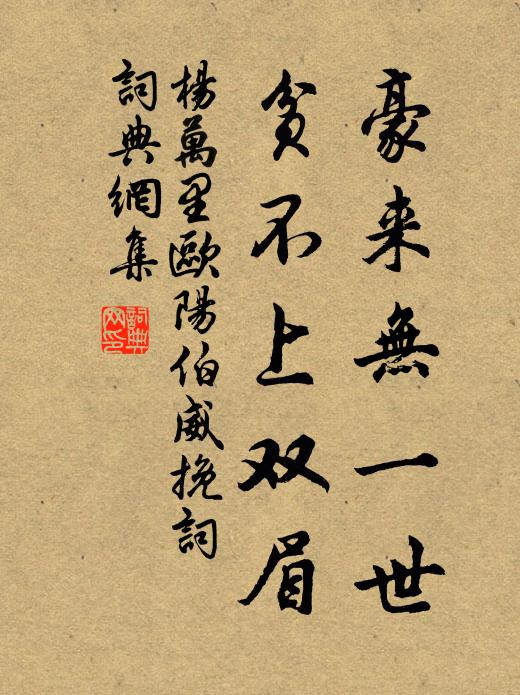 豪来無一世
貧不上双眉
楊萬里歐陽伯威挽詞
詞典網集
詞典网印